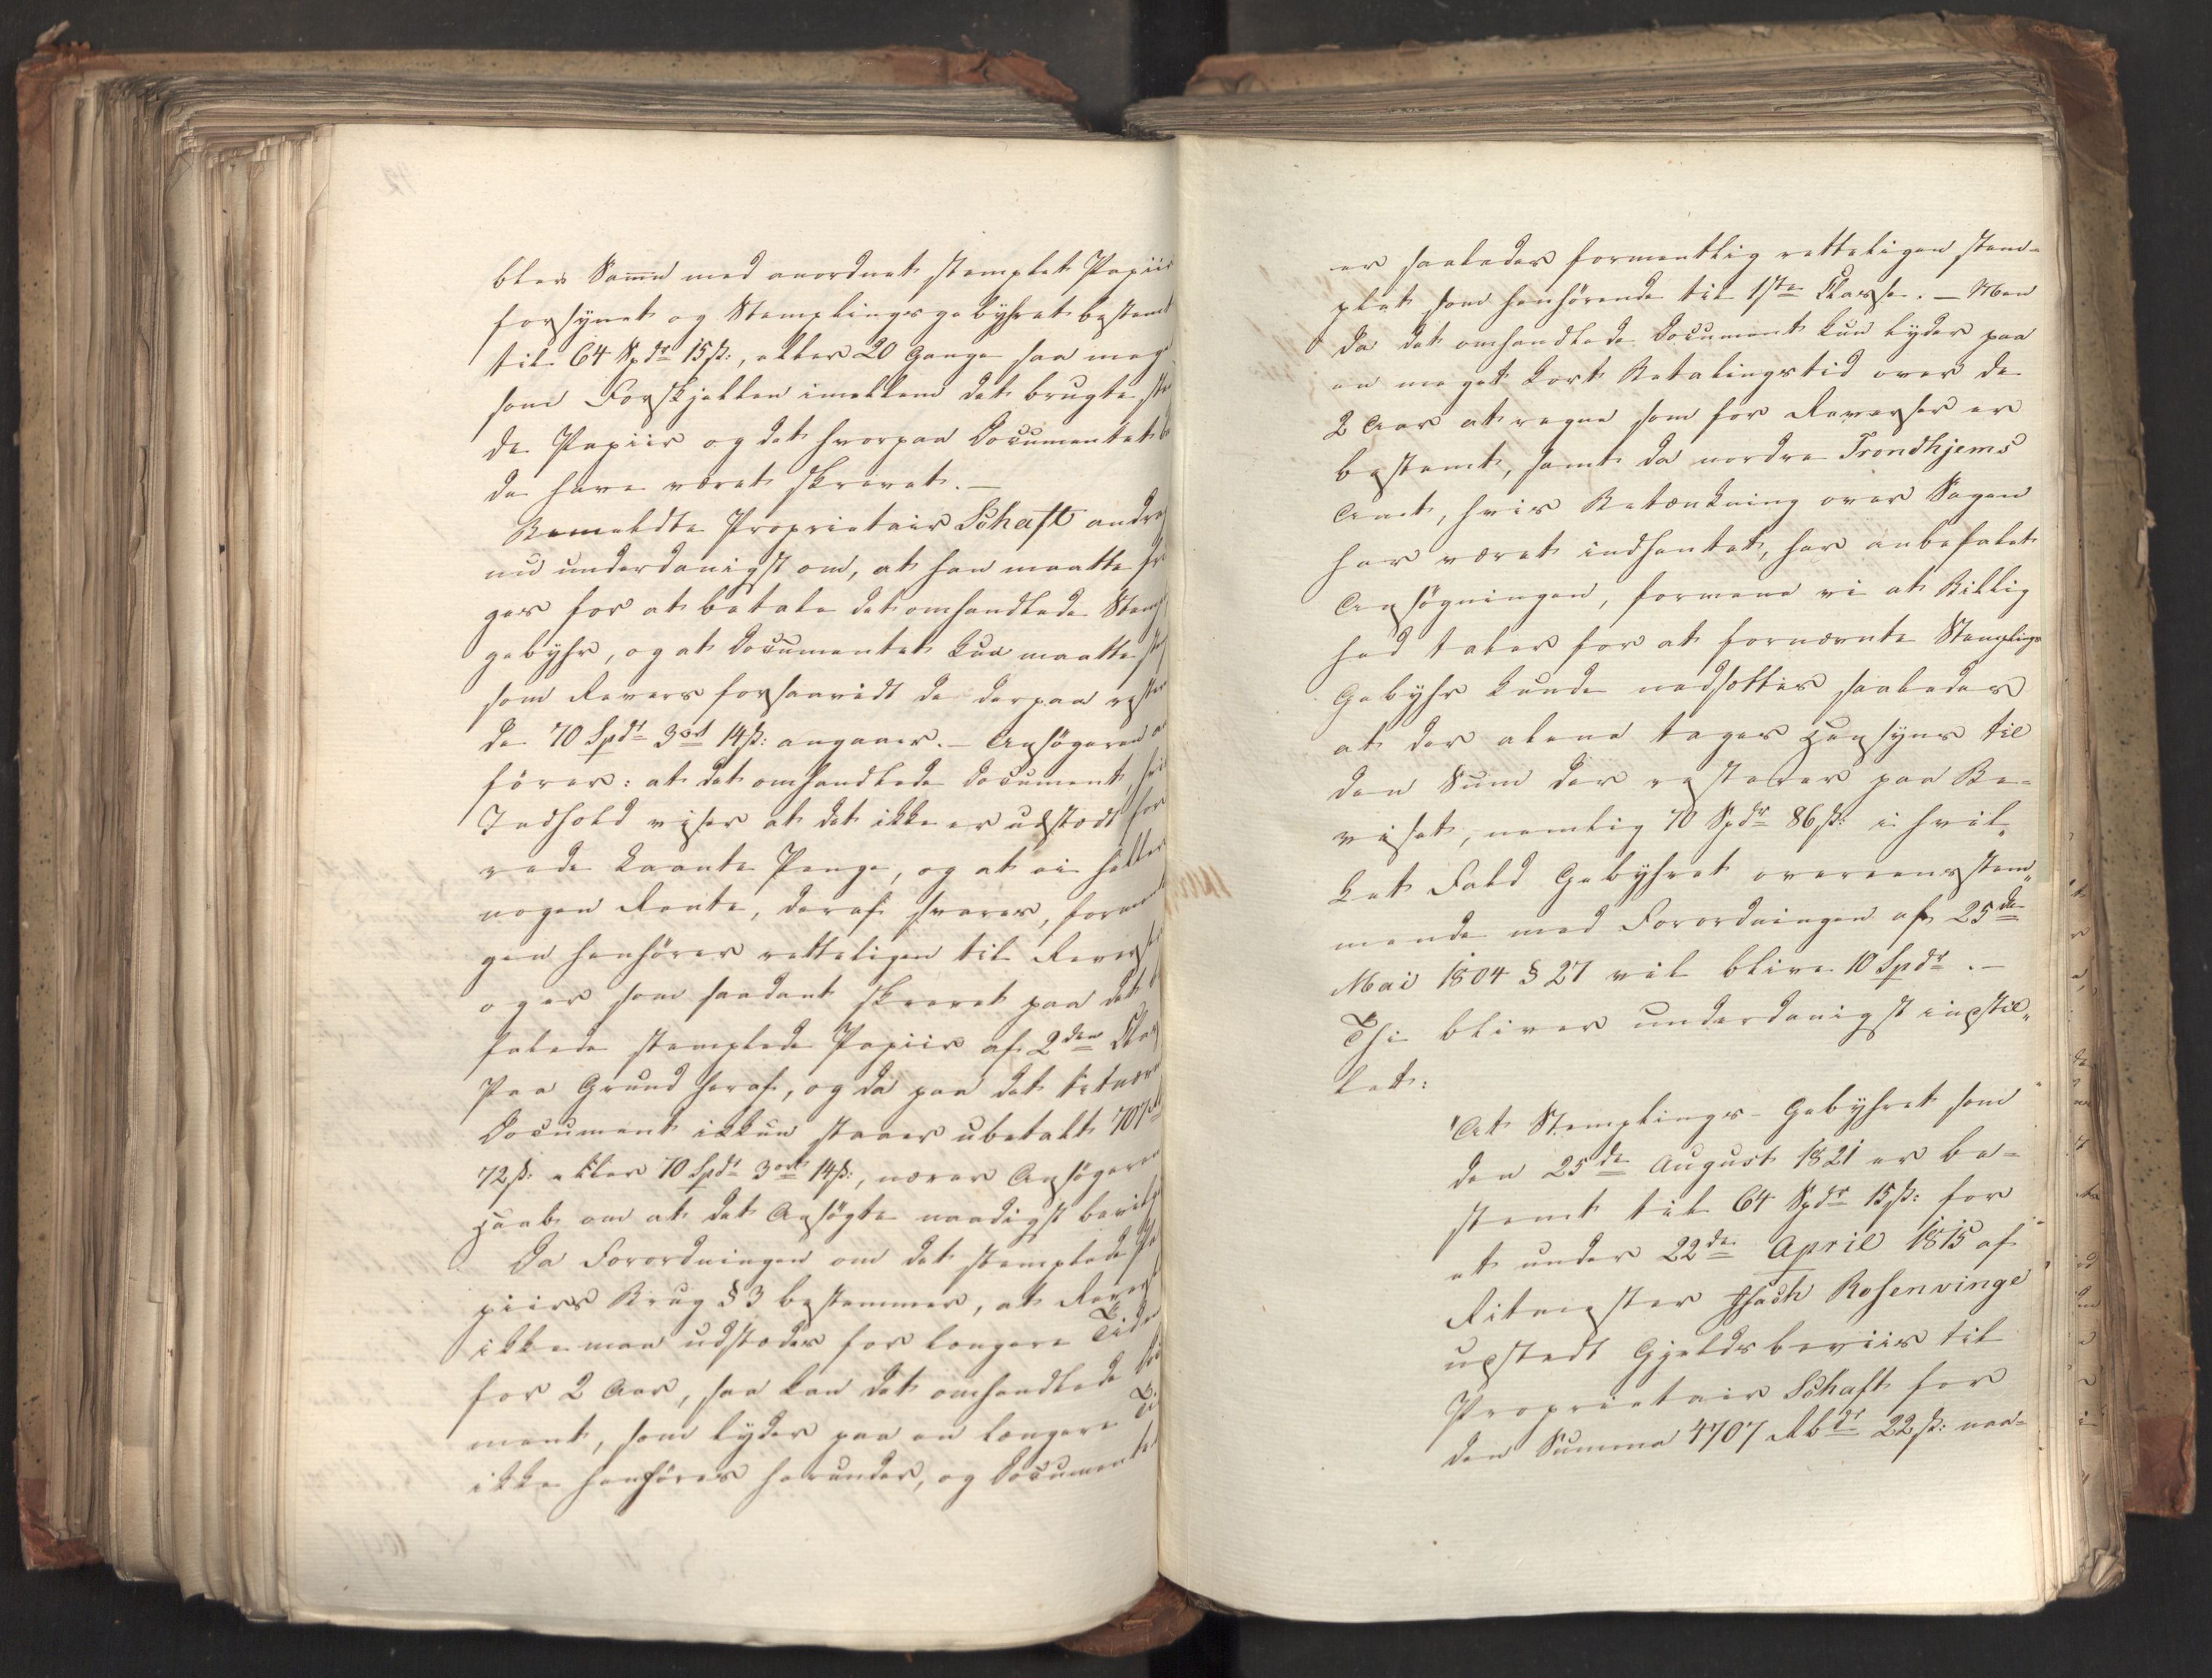 blev Samme med anordnet stemplet Papiir
forsynet og Stemplingsgebyhret bestemt
til 64 Spdr 15 ß:, eller 20 Gange saa meget
som Forskjellen imellem det brugte
de Papiir og det hvorpaa Documentet
de have været skrevet. —
Bemeldte Proprietair Schaft
nu underdanigst om, at han maatte
ges for at betale det omhandlede
gebyhr, og at Documentet kun maatte
som Revers forsaavidt de derpaa
de 70 Spdr 3 ort 14 ß: angaaer. — Ansøgeren
fører: at det omhandlede Document,
Indhold viser at det ikke er udstædt for
rede laante Penge, og at ei heller
nogen Rente, deraf svares,
gen henhører retteligen til
og er som saadant skrevet paa det
falede stemplede Papiir af 2den
Paa Grund heraf, og da paa det
Document ikkun staaer ubetalt 707
72 ß: eller 70 Spdr 3 ort 14 ß:, nærer Ansøgeren
Haab om at det Ansøgte naadigst
Da Forordningen om det stemplede Pa
piirs Brug § 3 bestemmer, at
ikke maa udstædes for længere Tid
for 2 Aar, saa kan det omhandlede
ment, som lyder paa en længere
ikke henføres herunder, og Documentet
er saaledes formentlig retteligen stem-
plet som henhørende til 1ste Classe. — Men
da det omhandlede Document kun lyder paa
en meget kort Betalingstid over de
2 Aar at regne som for Reverser er
bestemt, samt da nordre Trondhjems
Amt, hvis Betænkning over Sagen
har været indhentet, har anbefalet
Ansøgningen, formene vi at Billig
hed taler for at fornævnte Stemplings
Gebyhr kunde nedsættes saaledes
at der alene tages Hensyn til
den Sum der resterer paa Be-
viset, nemlig 70 Spdr 86 ß: i hvil„
ket Fald Gebyhret overeensstem„
mende med Forordningen af 25de
Mai 1804 § 27 vil blive 10 Spdr. —
Thi bliver underdanigst indstil„
let:
At Stemplings-Gebyhret som
den 25de August 1821 er be-
stemt til 64 Spdr 15 ß: for
et under 22de April 1815 af
Ritmester Hach Rosenvinge
udstedt Gjeldsbeviis til
Proprietair Schaft for
den Summa 4707 Rbdr 22 ß: naa-